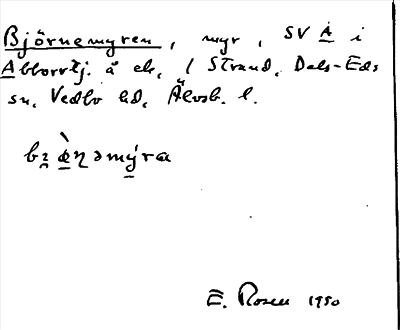 Björnemyren, myr, SV Å i
Abborrtj. å ek. 1 Strand, Dals-Eds
sn, Vedbo hd, Älvsb. l.
E. Rosen 1950